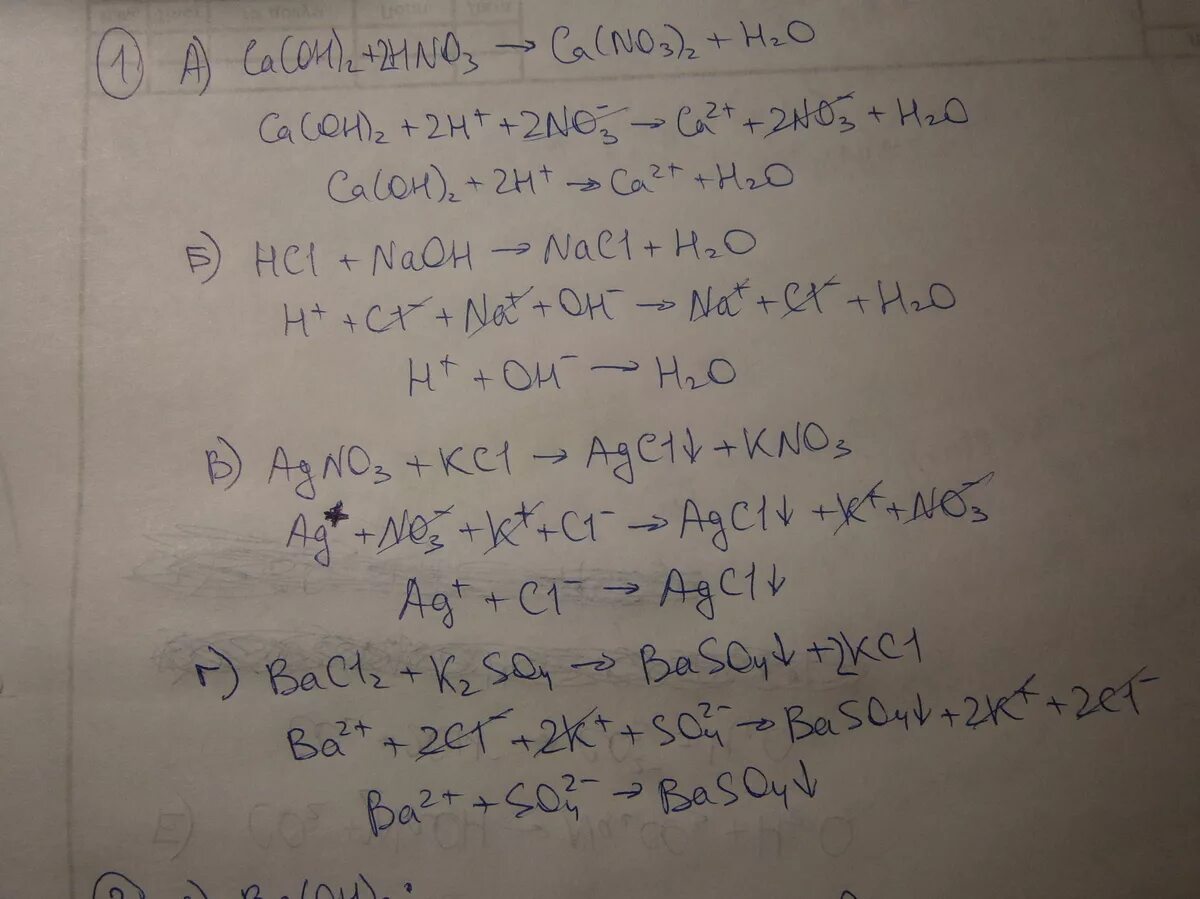 1. А) Ca(OH)₂ + 2HNO₃ → Ca(NO₃)₂ + H₂O
Ca(OH)₂ + 2H⁺ + 2NO₃⁻ → Ca²⁺ + 2NO₃⁻ + H₂O
Ca(OH)₂ + 2H⁺ → Ca²⁺ + H₂O
Б) HCl + NaOH → NaCl + H₂O
H⁺ + Cl⁻ + Na⁺ + OH⁻ → Na⁺ + Cl⁻ + H₂O
H⁺ + OH⁻ → H₂O
В) AgNO₃ + KCl → AgCl↓ + KNO₃
Ag⁺ + NO₃⁻ + K⁺ + Cl⁻ → AgCl↓ + K⁺ + NO₃⁻
Ag⁺ + Cl⁻ → AgCl↓
Г) BaCl₂ + K₂SO₄ → BaSO₄↓ + 2KCl
Ba²⁺ + 2Cl⁻ + 2K⁺ + SO₄²⁻ → BaSO₄↓ + 2K⁺ + 2Cl⁻
Ba²⁺ + SO₄²⁻ → BaSO₄↓